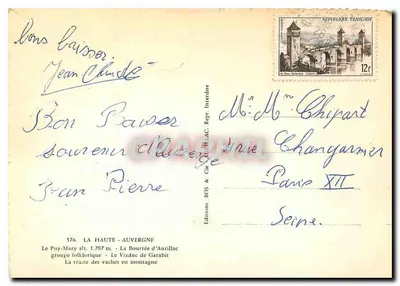 bons baisers
Jean Claude
Bon Baiser
souvenir d'Auvergne
Jean Pierre
576. LA HAUTE - AUVERGNE
Le Puy-Mary alt. 1.787 m. - La Bourrée d'Aurillac
groupe folklorique - Le Viaduc de Garabit
La traite des vaches en montagne
Editions BOS & Cie AURILLAC. Repr. Interdite
REPUBLIQUE FRANÇAISE
12F
Mr Mme Chipart
rue Changarnier
Paris XII
Seine.